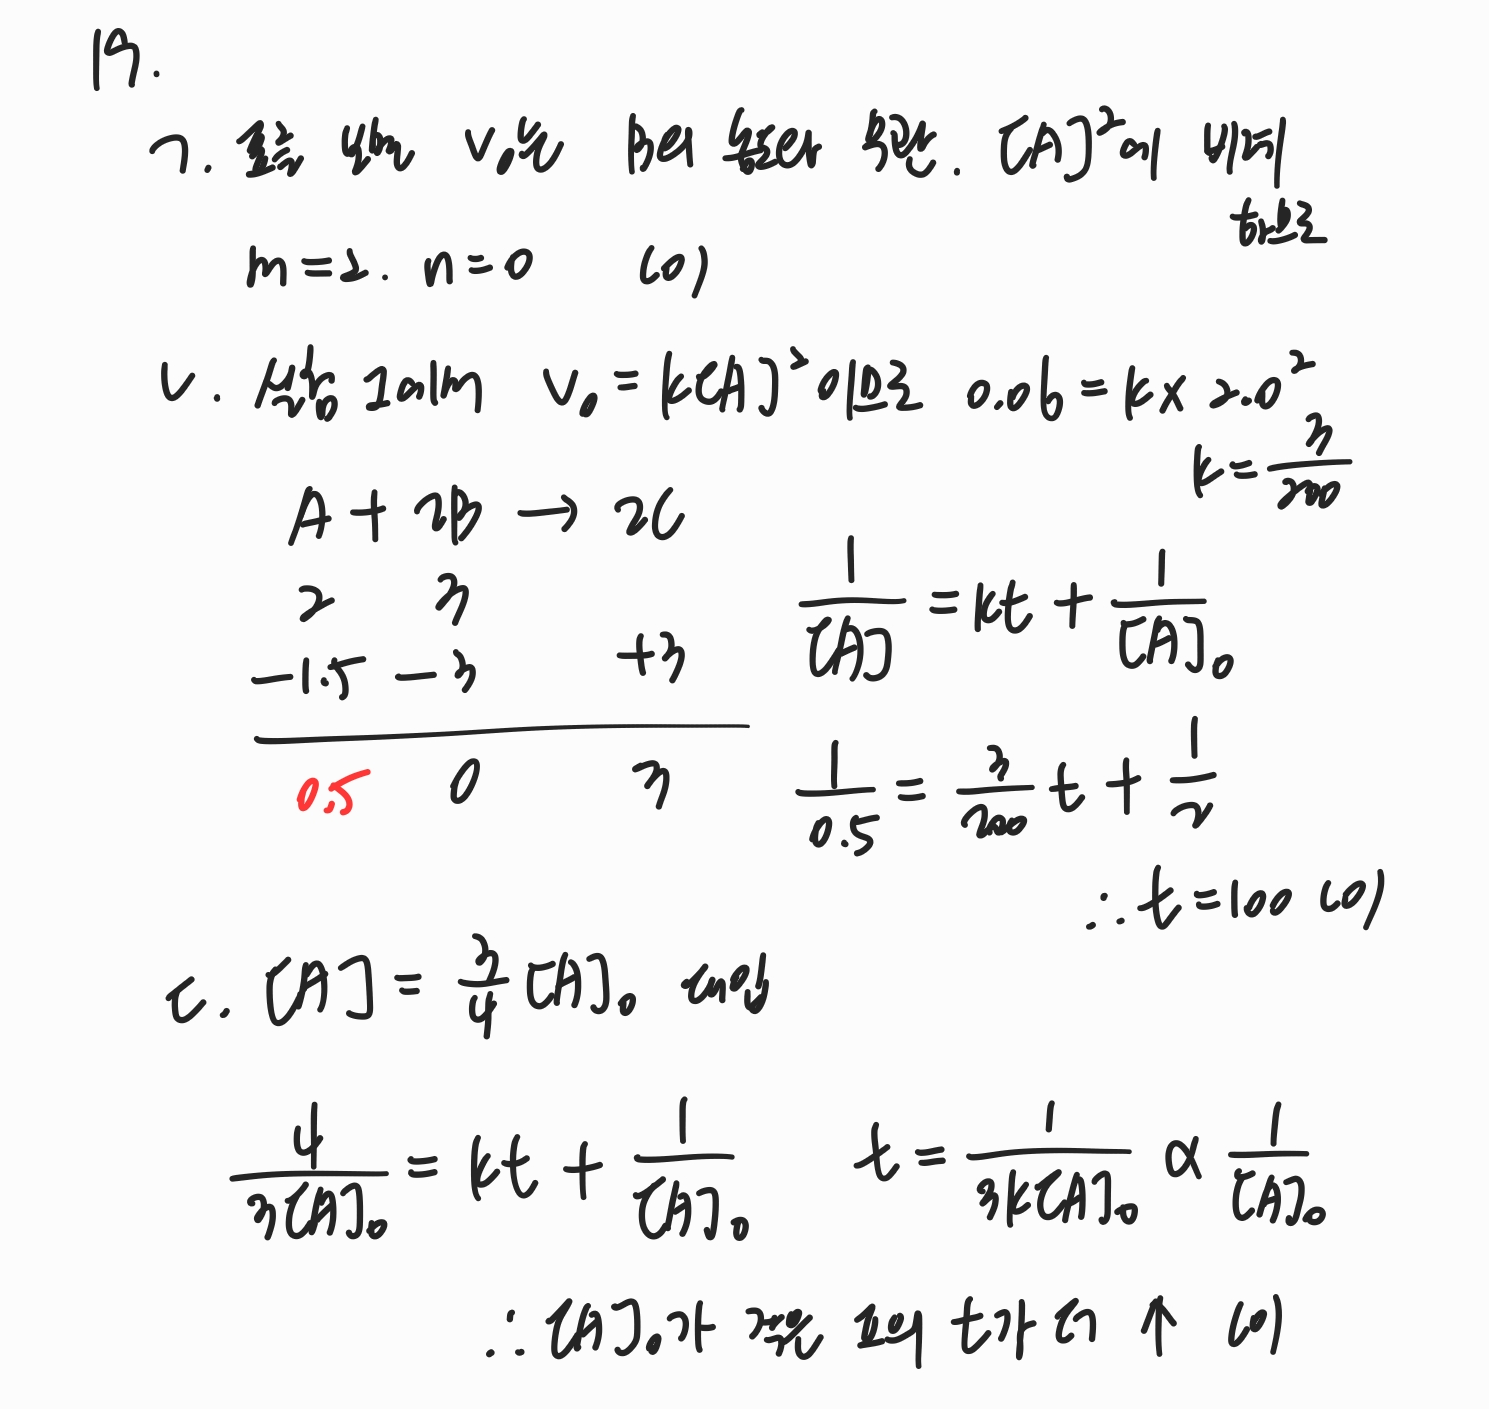 19.
ㄱ. 표를 보면 v₀는 B의 농도와 무관. [A]²에 비례
하므로
m=2. n=0 (O)
ㄴ. 실험 1에서 v₀ = k[A]²이므로 0.06 = k × 2.0²
k = 3/200
A + 2B → 2C
2 3
-1.5 -3 +3
0.5 0 3
1/[A] = kt + 1/[A]₀
1/0.5 = 3/200 t + 1/2
∴ t = 100 (O)
ㄷ. [A] = 3/4 [A]₀ 대입
4/3[A]₀ = kt + 1/[A]₀ t = 1/3k[A]₀ ∝ 1/[A]₀
∴ [A]₀가 작은 1의 t가 더 ↑ (O)